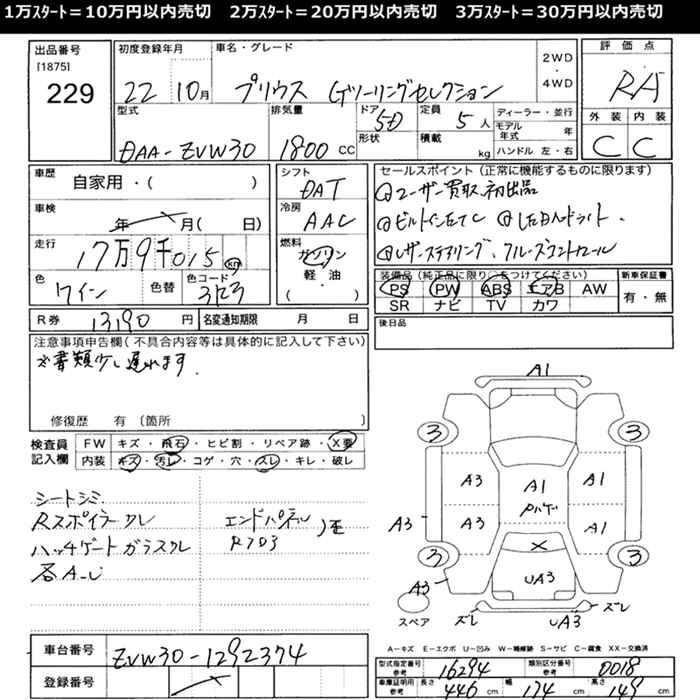 1万ｽﾀｰﾄ＝10万円以内売切　2万ｽﾀｰﾄ＝20万円以内売切　3万ｽﾀｰﾄ＝30万円以内売切
出品番号
[1875]
229
初度登録年月
22 10月
車名・グレード
プリウス Gツーリングセレクション
2WD
・
4WD
評価点
RA
外装 内装
C C
型式
DAA-ZVW30
排気量
1800 CC
ドア 5D
形状
定員 5人
積載 kg
ディーラー・並行
モデル年式 年
ハンドル 左・右
車歴
自家用・( )
車検
年 月( 日)
走行
17万9千015 km
色
ワイン
色替
色コード
3R3
シフト
DAT
冷房
AAC
燃料
ガソリン
軽・油
( )
セールスポイント(正常に機能するものに限ります)
ユーザー買取初出品
ビルトインETC
レザーステアリング、クルーズコントロール
装備品(純正品に限り○をつけてください)
PS PW ABS エアB AW
SR ナビ TV カワ
新車保証書
有・無
R券 13190 円
名変通知期限 月 日
後日品
注意事項申告欄(不具合内容等は具体的に記入して下さい)
書類少し遅れます.
修復歴 有(箇所 )
検査員
記入欄
FW キズ・飛石・ヒビ割・リペア跡・X要
内装 キズ・汚レ・コゲ・穴・スレ・キレ・破レ
シートシミ
Rスポイラークレ
ハッチゲートガラスクレ
各A-U
エンドパネル
Rフロア
A1
3 3
A3 A1 A1
Rハゲ
A3 A3 A1
3 X 3
A3 UA3
スペア
ズレ UA3 ズレ
A－キズ E－エクボ U－凹み W－補修跡 S－サビ C－腐食 XX－交換済
車台番号
ZVW30-1292374
登録番号
型式指定番号 参考 16294
類別区分番号 参考 0018
車庫証明用 参考 長さ 446 cm 幅 174 cm 高さ 149 cm